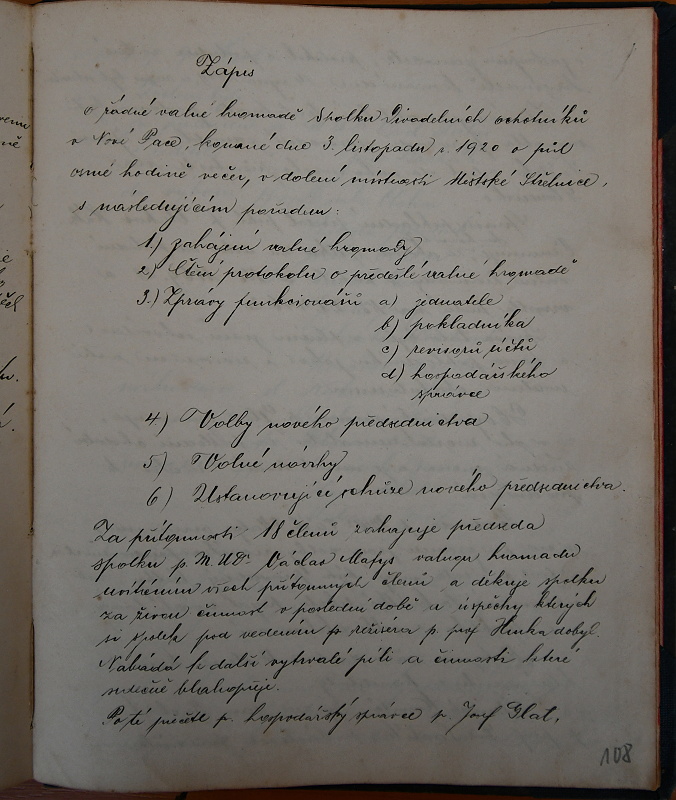 Zápis
o řádné valné hromadě Spolku Divadelních ochotníků
v Nové Pace, konané dne 3. listopadu r. 1920 o půl
osmé hodině večer, v dolení místnosti Městské Střelnice,
s následujícím pořadem:
1.) zahájení valné hromady
2.) Čtení protokolu o předešlé valné hromadě
3.) Zprávy funkcionářů a) jednatele
b) pokladníka
c) revisorů účtů
d) hospodářského
správce
4) Volby nového předsednictva
5) Volné návrhy
6) Ustanovující schůze nového předsednictva.
Za přítomnosti 18 členů zahajuje předseda
spolku p. M.U.Dr. Václav Matys valnou hromadu
uvítáním všech přítomných členů a děkuje spolku
za živou činnost v poslední době a úspěchy kterých
si spolek pod vedením p. režiséra p. prof. dobyl.
Nabádá k další vytrvalé píli a činnosti které
srdečně blahopřeje.
Poté přečetl p. hospodářský správce p. Josef Glat,
108